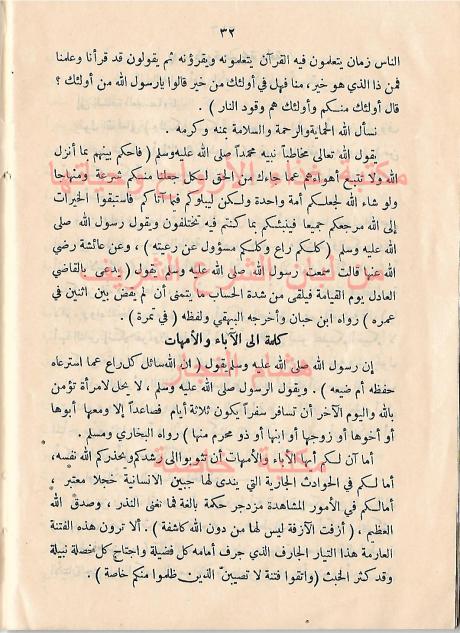 ٣٢
الناس زمان يتعلمون فيه القرآن يتعلمونه ويقرؤنه ثم يقولون قد قرأنا وعلمنا
فمن ذا الذي هو خير، منا فهل في أولئك من خير قالوا يارسول الله من أولئك ؟
قال أولئك منكم وأولئك هم وقود النار ) .
نسأل الله الحماية والرحمة والسلامة بمنه وكرمه .
يقول الله تعالى مخاطباً نبيه محمداً صلى الله عليه وسلم ( فاحكم بينهم بما أنزل
الله ولا تتبع أهواءهم عما جاءك من الحق لكل جعلنا منكم شرعة ومنهاجا
ولو شاء الله لجعلكم أمة واحدة ولكن ليبلوكم فيما آتاكم فاستبقوا الخيرات
إلى الله مرجعكم جميعا فينبئكم بما كنتم فيه تختلفون ويقول رسول الله صلى
الله عليه وسلم ( كلكم راع وكلكم مسؤول عن رعيته ) ، وعن عائشة رضي
الله عنها قالت سمعت رسول الله صلى الله عليه وسلم يقول ( يدعى بالقاضي
العادل يوم القيامة فيلقى من شدة الحساب ما يتمنى أن لم يقض بين اثنين في
عمره ) رواه ابن حبان وأخرجه البيهقي ولفظه ( في تمرة ) .
كلمة الى الآباء والأمهات
إن رسول الله صلى الله عليه وسلم يقول ( ان الله سائل كل راع عما استرعاه
حفظه أم ضيعه ) . ويقول الرسول صلى الله عليه وسلم ، لا يحل لامرأة تؤمن
بالله واليوم الآخر أن تسافر سفراً يكون ثلاثة أيام فصاعداً إلا ومعها أبوها
أو أخوها أو زوجها أو ابنها أو ذو محرم منها ) رواه البخاري ومسلم .
أما آن لكم أيها الأباء والأمهات أن تثوبوا الى رشدكم ويحذركم الله نفسه،
أما لكم في الحوادث الجارية التي يندى لها جبين الانسانية خجلا معتبر ،
أمالكم في الأمور المشاهدة مزدجر حكمة بالغة فما تغنى النذر ، وصدق الله
العظيم ، ( أزفت الآزفة ليس لها من دون الله كاشفة ) . ألا ترون هذه الفتنة
العارمة هذا التيار الجارف الذي جرف أمامه كل فضيلة واجتاح كل خصلة نبيلة
وقد كثر الخبث ( واتقوا فتنة لا تصيبن الذين ظلموا منكم خاصة ) .